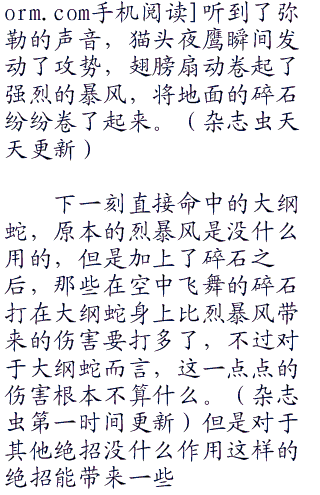 orm.com手机阅读]听到了弥
勒的声音，猫头夜鹰瞬间发
动了攻势，翅膀扇动卷起了
强烈的暴风，将地面的碎石
纷纷卷了起来。（杂志虫天
天更新）
下一刻直接命中的大纲
蛇，原本的烈暴风是没什么
用的，但是加上了碎石之
后，那些在空中飞舞的碎石
打在大纲蛇身上比烈暴风带
来的伤害要打多了，不过对
于大纲蛇而言，这一点点的
伤害根本不算什么。（杂志
虫第一时间更新）但是对于
其他绝招没什么作用这样的
绝招能带来一些